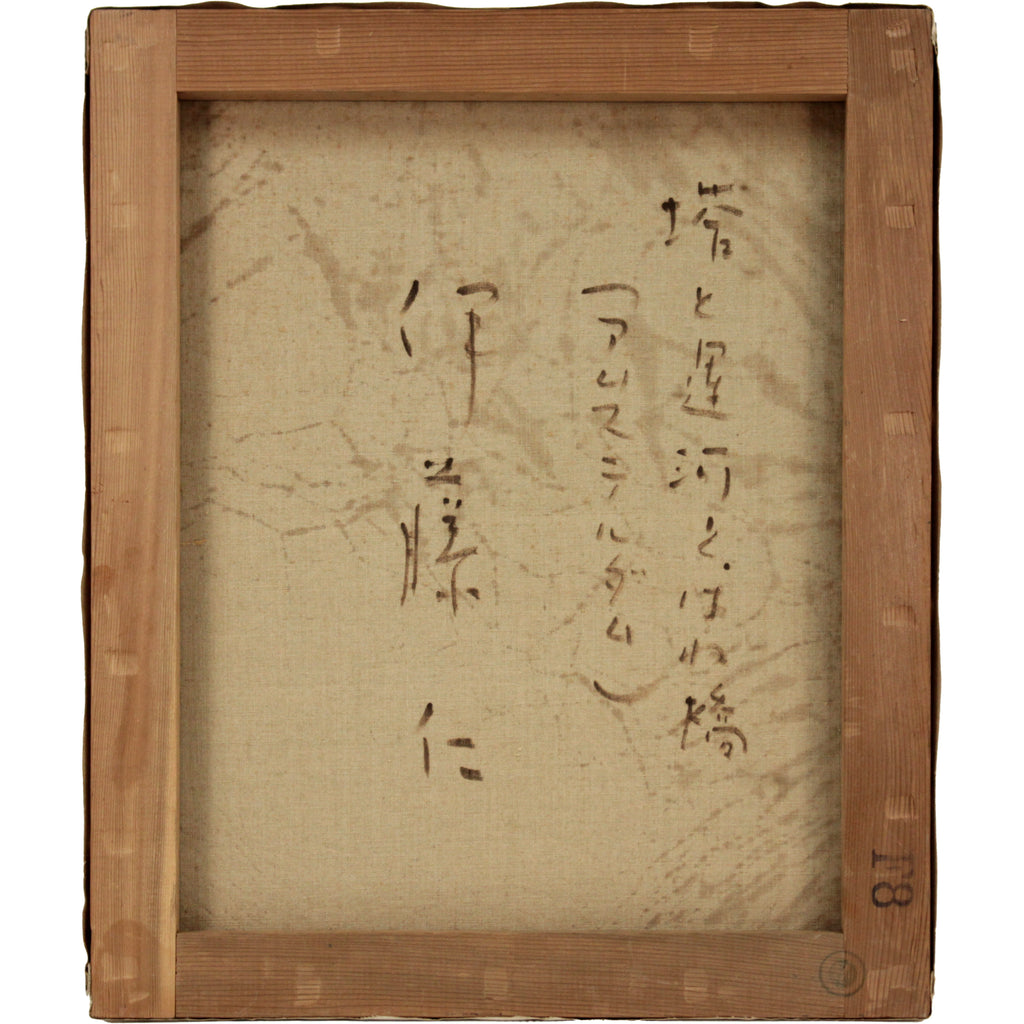 塔と運河とはね橋
(アムステルダム)
伊藤 仁
F8